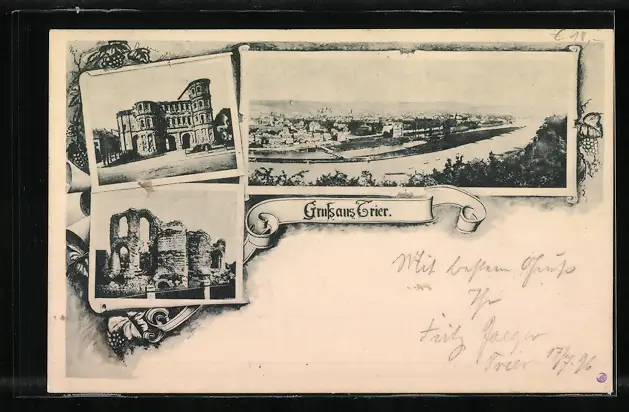 € 18,-
Gruß aus Trier.
Mit bestem Gruß
Ihr
Fritz Jaeger
Trier 17/7. 96